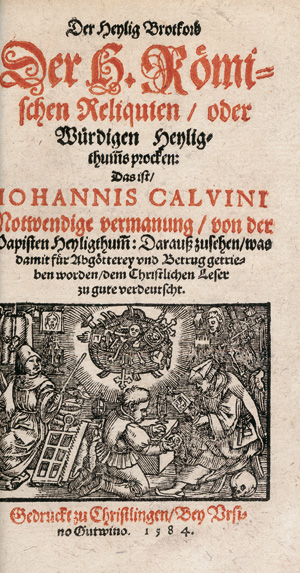 Der Heylig Brotkorb
Der H. Römi-
schen Reliquien / oder
Würdigen Heylig-
thum̃s procken:
Das ist /
IOHANNIS CALVINI
Notwendige vermanung / von der
Papisten Heyligthum̃: Darauß zusehen / was
damit für Abgötterey vnd Betrug getrie-
ben worden / dem Christlichen Leser
zu gute verdeutscht.
Gedruckt zu Christlingen / Bey Vrsi-
no Gutwino. 1584.